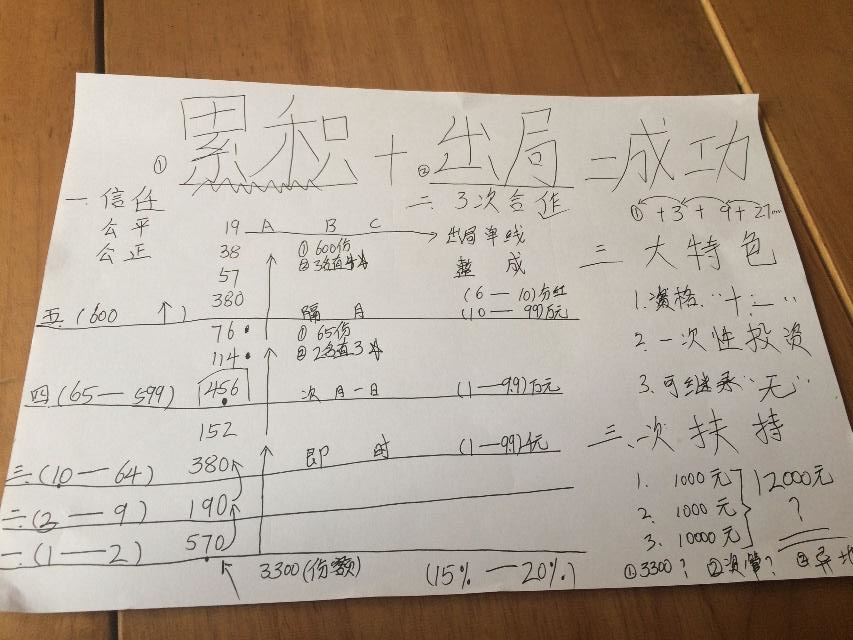 ① 累积 + ② 出局 = 成功
一 信任
公平
公正
二 3次合作
① +3 + 9 + 27
19 A B C 出局单线
38 ① 600份 整成
② 3名直
57
380 (6—10)分红
五 (600 ↑) 隔月 (10—99)万元
76 ① 65份
114 ② 2名直3
四 (65—599) 456 次月一日 (1—9.9)万元
152
三 (10—64) 380 即时 (1—99)千元
二 (2—9) 190
一 (1—2) 570
3300 (份额) (15%—20%)
三大特色
1. 资格 "十二"
2. 一次性投资
3. 可继承 "无"
三、次扶持
1. 1000元
2. 1000元
3. 10000元
12000元
?
① 3300? ② ③ 异地